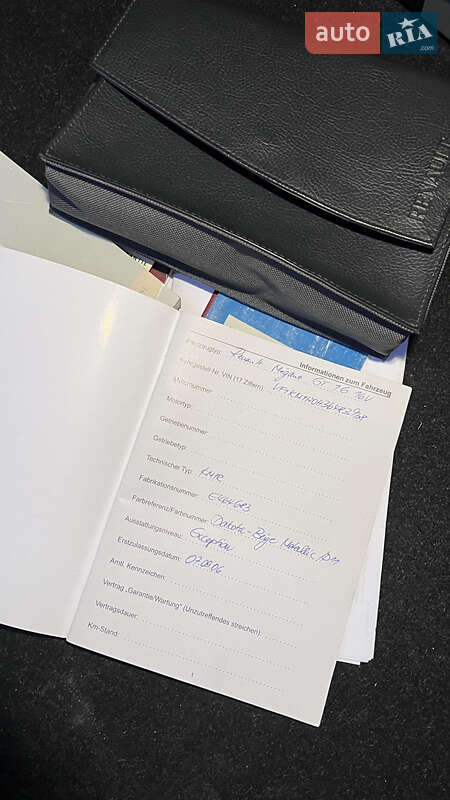 auto RIA
.com
RENAULT
Informationen zum Fahrzeug
Fahrzeugtyp: Renault Megane GT 1.6 16V
Fahrgestell-Nr. VIN (17 Ziffern):
Motornummer:
Motortyp:
Getriebenummer:
Getriebetyp:
Technischer Typ:
Fabrikationsnummer:
Farbreferenz/Farbnummer: Dakota-Beige Metallic
Ausstattungsniveau: Exception
Erstzulassungsdatum: 07.08.06
Amtl. Kennzeichen:
Vertrag „Garantie/Wartung" (Unzutreffendes streichen):
Vertragsdauer:
Km-Stand:
1